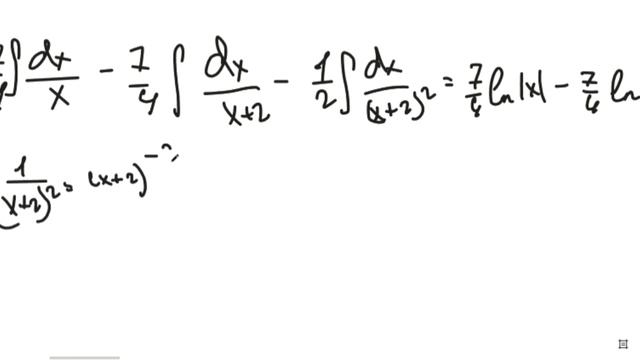 ∫ dx/x − 7/4 ∫ dx/(x+2) − 1/2 ∫ dx/(x+2)² = 7/4 ln|x| − 7/4 ln
1/(x+2)² = (x+2)⁻